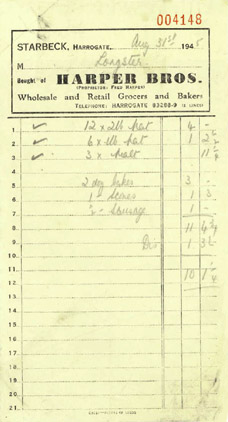 004148
STARBECK, HARROGATE, Aug 31st 1945
M Longster
Bought of HARPER BROS.
(PROPRIETOR: FRED HARPER)
Wholesale and Retail Grocers and Bakers
TELEPHONE: HARROGATE 83288-9 (2 LINES)
1. ✓ 12 x 2lb 4 -
2. ✓ 6 x 1lb 1
3. ✓ 3 x 11
4.
5. 2 doz cakes 3 -
6. 1 - Scones 1 3
7. ½ - Sausage 1 -
8. 11
9. Div 1
10.
11. 10 1
12.
13.
14.
15.
16.
17.
18.
19.
20.
21.